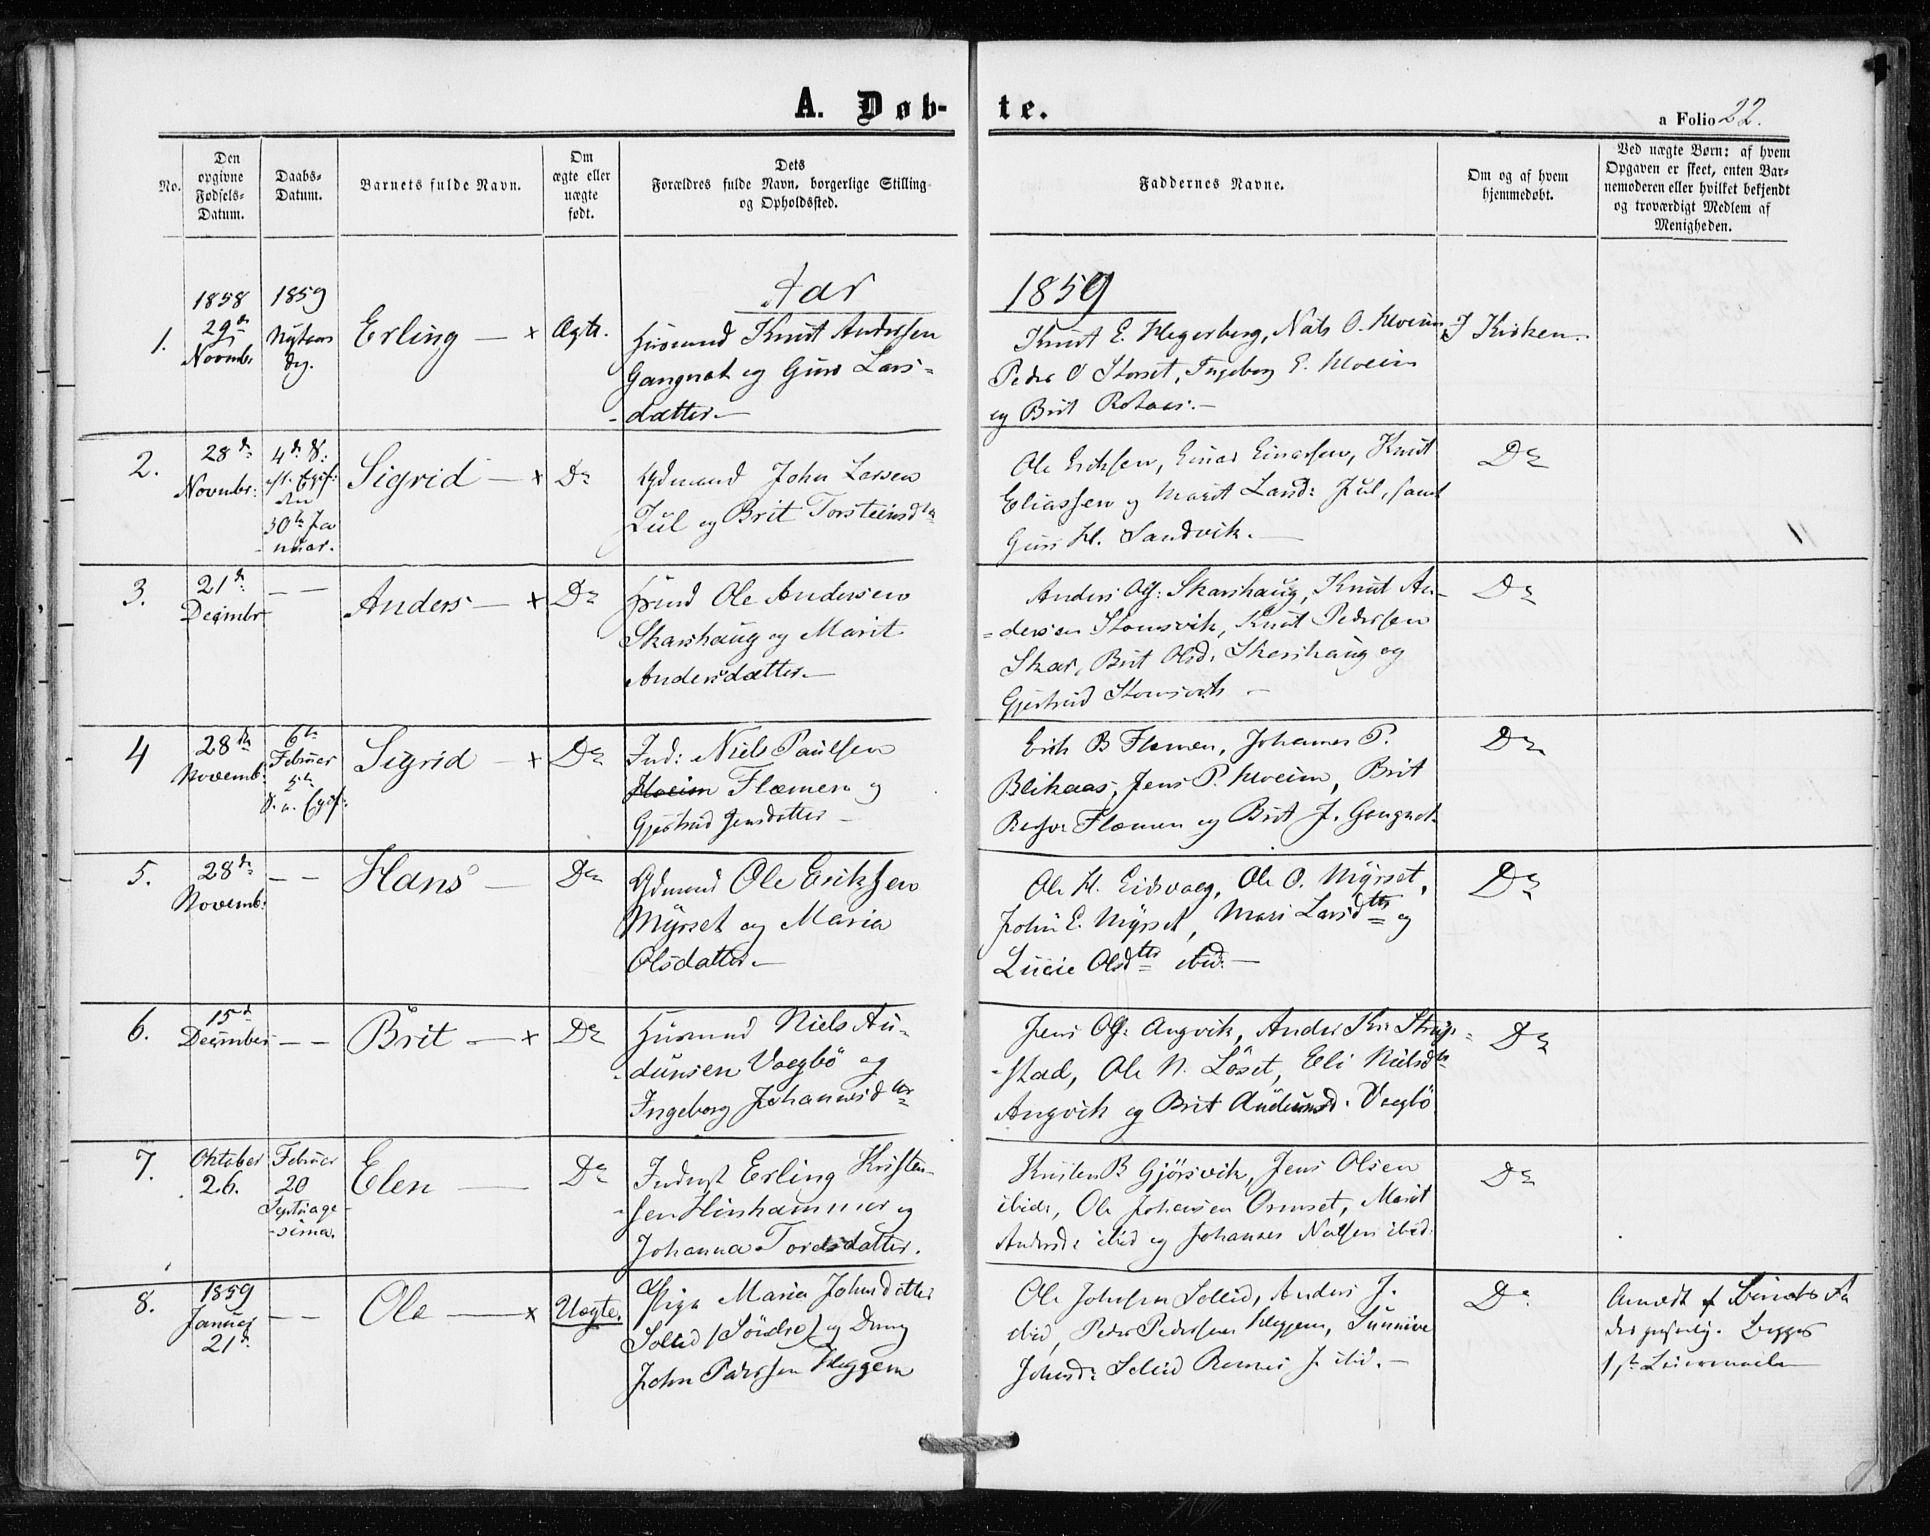 A. Døbte.
a Folio 22.
No.
Den opgivne Fødsels-Datum.
Daabs-Datum.
Barnets fulde Navn.
Om ægte eller uægte født.
Dets Forældres fulde Navn, borgerlige Stilling og Opholdssted.
Faddernes Navne.
Om og af hvem hjemmedøbt.
Ved uægte Børn: af hvem
Opgaven er skeet, enten Bar-
nemoderen eller hvilket bekjendt
og troværdigt Medlem af
Menigheden.
Aar 1859
1.
1858
29de
Novembr
1859
Nytaars
dag.
Erling — x
Ægte.
Husmand Knut Andersen
Gangnat og Guro Lars-
-datter.—
Knut E. Hegerberg, Nils O. Moeim
Peder O Storset, Ingeborg E. Moeim
og Brit Rotaas.—
I Kirken.
2.
28de
Novmbr:
4de S:
eft. Egif:
den
30te Ja
-nuar.
Sigrid — x
Do
Gdmand John Larsen
Jul og Brit Torsteinsdtr
Ole Eriksen, Einar Einarsen, Knut
Eliassen og Marit Larsd: Jul, samt
Guri H. Sandvik.—
Do
3.
21de
Decimbr
— —
Anders — x
Do
Husmd Ole Andersen
Skarshaug og Marit
Andersdatter.—
Anders Ols: Skarshaug, Knut An-
=dersen Stomsvik, Knut Pedersen
Skar, Brit Olsd: Skarshaug og
Gjertrud Stomsvik —
Do
4
28de
Novemb.
6te
Februar
5te
S. e. Egif:
Sigrid — x
Do
Ind: Niels Paulsen
Moeim Flemen og
Gjertrud Jensdatter —
Erik B Flemen, Johannes P.
Blikaas, Jens P. Moeim, Brit
Flemen og Brit J. Gangnat
Do
5.
28de
Novemb:
— —
Hans —
Do
Gdmand Ole Eriksen
Myrset og Maria
Olsdatter.—
Ole H. Eidsvaag, Ole O. Myrset,
John E. Myrset, Mari Larsdtr og
Lucie Olsdtr ibid.—
Do
6.
15de
Decimber
— —
Brit — x
Do
Husmand Niels Au-
-dunsen Vaagbö og
Ingeborg Johannesdtr
Jens Ols: Angvik, Anders Kr: Strup-
-stad, Ole N. Löset, Eli Nielsdtr
Angvik og Brit Audunsd. Vaagbö
Do
7.
Oktober
26.
Februar
20
Septuage
-sima.
Elen —
Do
Inderst Erling Kristen-
-sen Hinshammer og
Johanna Tordsdatter.
Kristen B Gjörsvik, Jens Olsen
ibid:, Ole Johansen Ormset, Marit
Andersd: ibid og Johannes Nilsen ibid:
Do
8.
1859
Januar
21de
— —
Ole — x
Uægte.
Pige Maria Johnsdatter
Solлid (Söndre) og Dreng
John Pedersen Heggem
Ole Johnsen Sollid, Anders J.
ibid, Peder Pedersen Heggem, Sunnive
Johnsd: Sollid J. ibid.—
Do
Anmeldt af Barnets Fa
der Begges
1ste Leiermaal